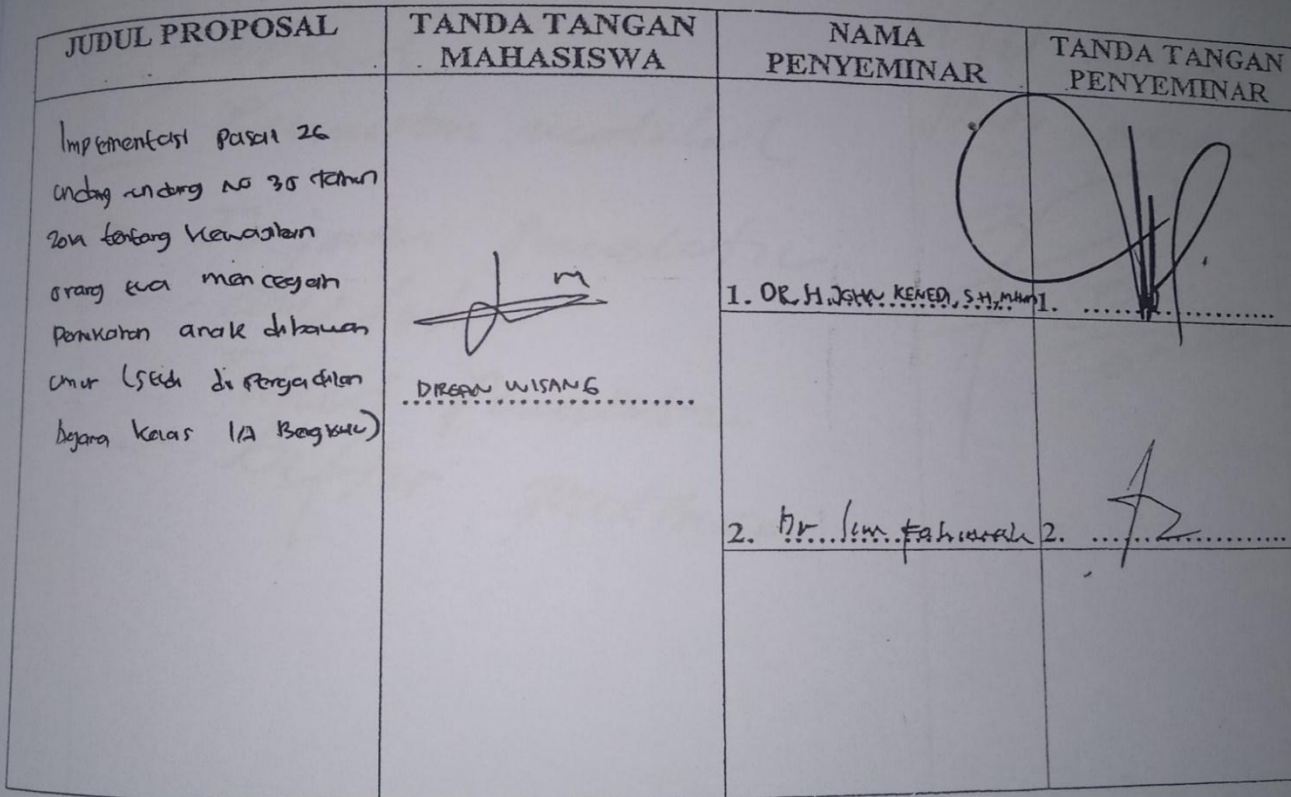 JUDUL PROPOSAL
TANDA TANGAN
MAHASISWA
NAMA
PENYEMINAR
TANDA TANGAN
PENYEMINAR
Implementasi Pasal 26
undang-undang No 35 tahun
tentang Kewajiban
orang tua mencegah
Pernikahan anak dibawah
umur (Studi di Pengadilan
Kelas 1A Bengkulu)
DIREAN WISANG
1. DR.H.JOHN KENEDI, S.H,M.Hum
1. ....................
2. Dr. Iim Fahimah
2. ....................